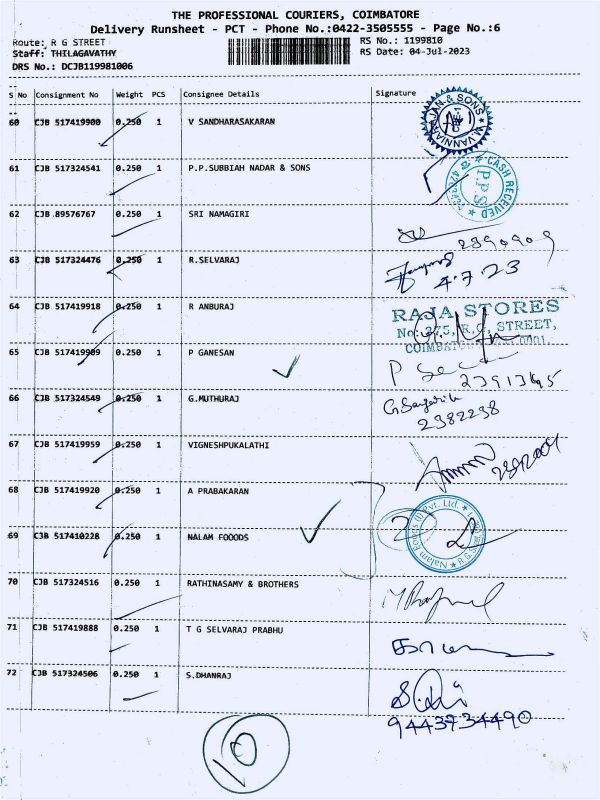 THE PROFESSIONAL COURIERS, COIMBATORE
Delivery Runsheet - PCT - Phone No.:0422-3505555 - Page No.:6
Route: R G STREET RS No.: 1199810
Staff: THILAGAVATHY RS Date: 04-Jul-2023
DRS No.: DCJB119981006
S No Consignment No Weight PCS Consignee Details Signature
60 CJB 517419900 0.250 1 V SANDHARASAKARAN
61 CJB 517324541 0.250 1 P.P.SUBBIAH NADAR & SONS
CASH RECEIVED
P.P.S
62 CJB 89576767 0.250 1 SRI NAMAGIRI
2390909
63 CJB 517324476 0.250 1 R.SELVARAJ
4.7.23
64 CJB 517419918 1 R ANBURAJ
RAJA STORES
STREET,
65 CJB 517419909 0.250 1 P GANESAN
P
66 CJB 517324549 0.250 1 G.MUTHURAJ
2382238
67 CJB 517419959 0.250 1 VIGNESHPUKALATHI
68 CJB 517419920 0.250 1 A PRABAKARAN
69 CJB 517410228 0.250 1 NALAM FOOODS
Nalam Foods (I) Pvt. Ltd.
70 CJB 517324516 0.250 1 RATHINASAMY & BROTHERS
71 CJB 517419888 0.250 1 T G SELVARAJ PRABHU
72 CJB 517324506 0.250 1 S.DHANRAJ
9443734490
10